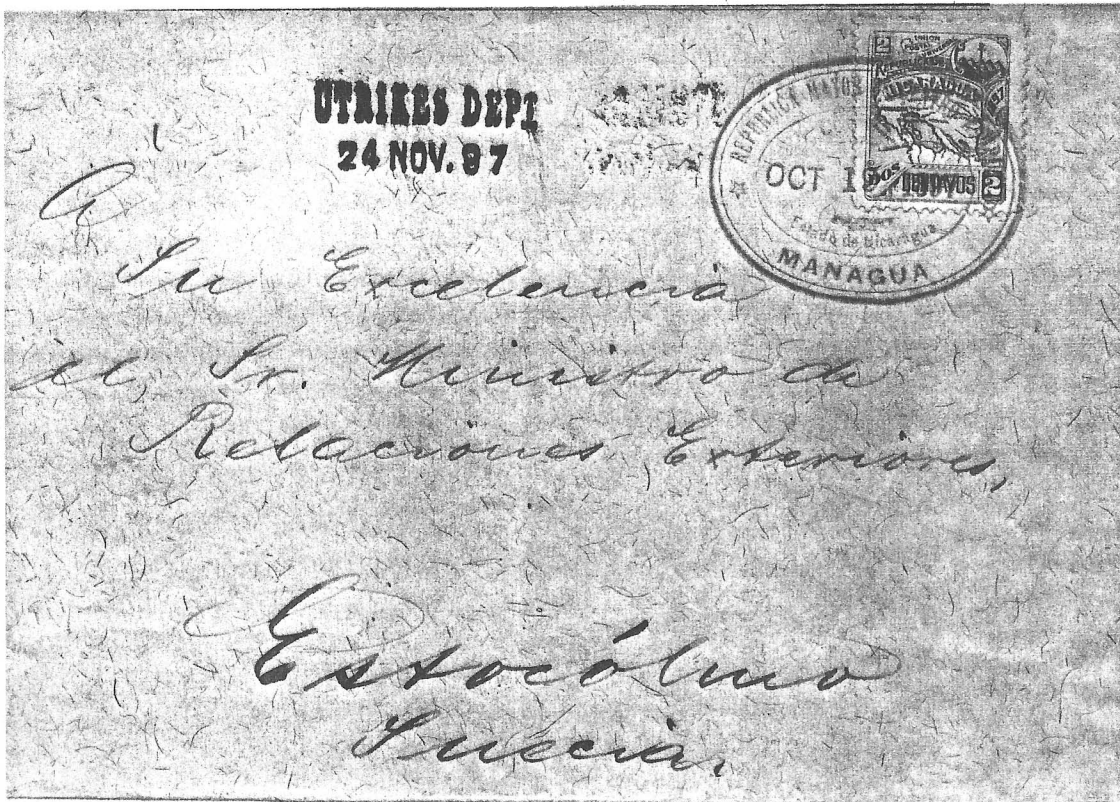 UTRIKES DEPT
24 NOV. 97
REPUBLICA MAYOR
OCT 19
Estado de Nicaragua
MANAGUA
2
UNION
POSTAL
NICARAGUA
97
DOS CENTAVOS 2
A
Su Excelencia
el Sr. Ministro de
Relaciones Exteriores,
Estocólmo
Suecia.